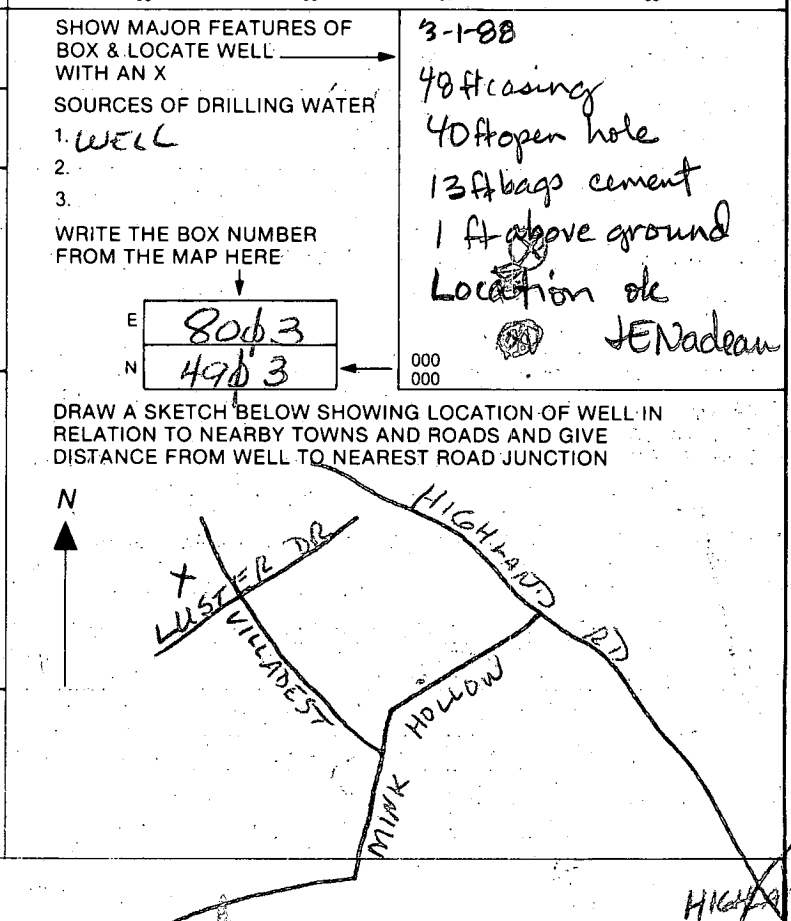 SHOW MAJOR FEATURES OF
BOX & LOCATE WELL
WITH AN X
SOURCES OF DRILLING WATER
1. WELL
2.
3.
WRITE THE BOX NUMBER
FROM THE MAP HERE
E 8003
N 4903
3-1-88
48 ft casing
40 ft open hole
13 ft bags cement
1 ft above ground
Location ok
JENadeau
000
000
DRAW A SKETCH BELOW SHOWING LOCATION OF WELL IN
RELATION TO NEARBY TOWNS AND ROADS AND GIVE
DISTANCE FROM WELL TO NEAREST ROAD JUNCTION
N
HIGHLAND RD.
X
LUSTER DR
VILLADEST
HOLLOW
MINK